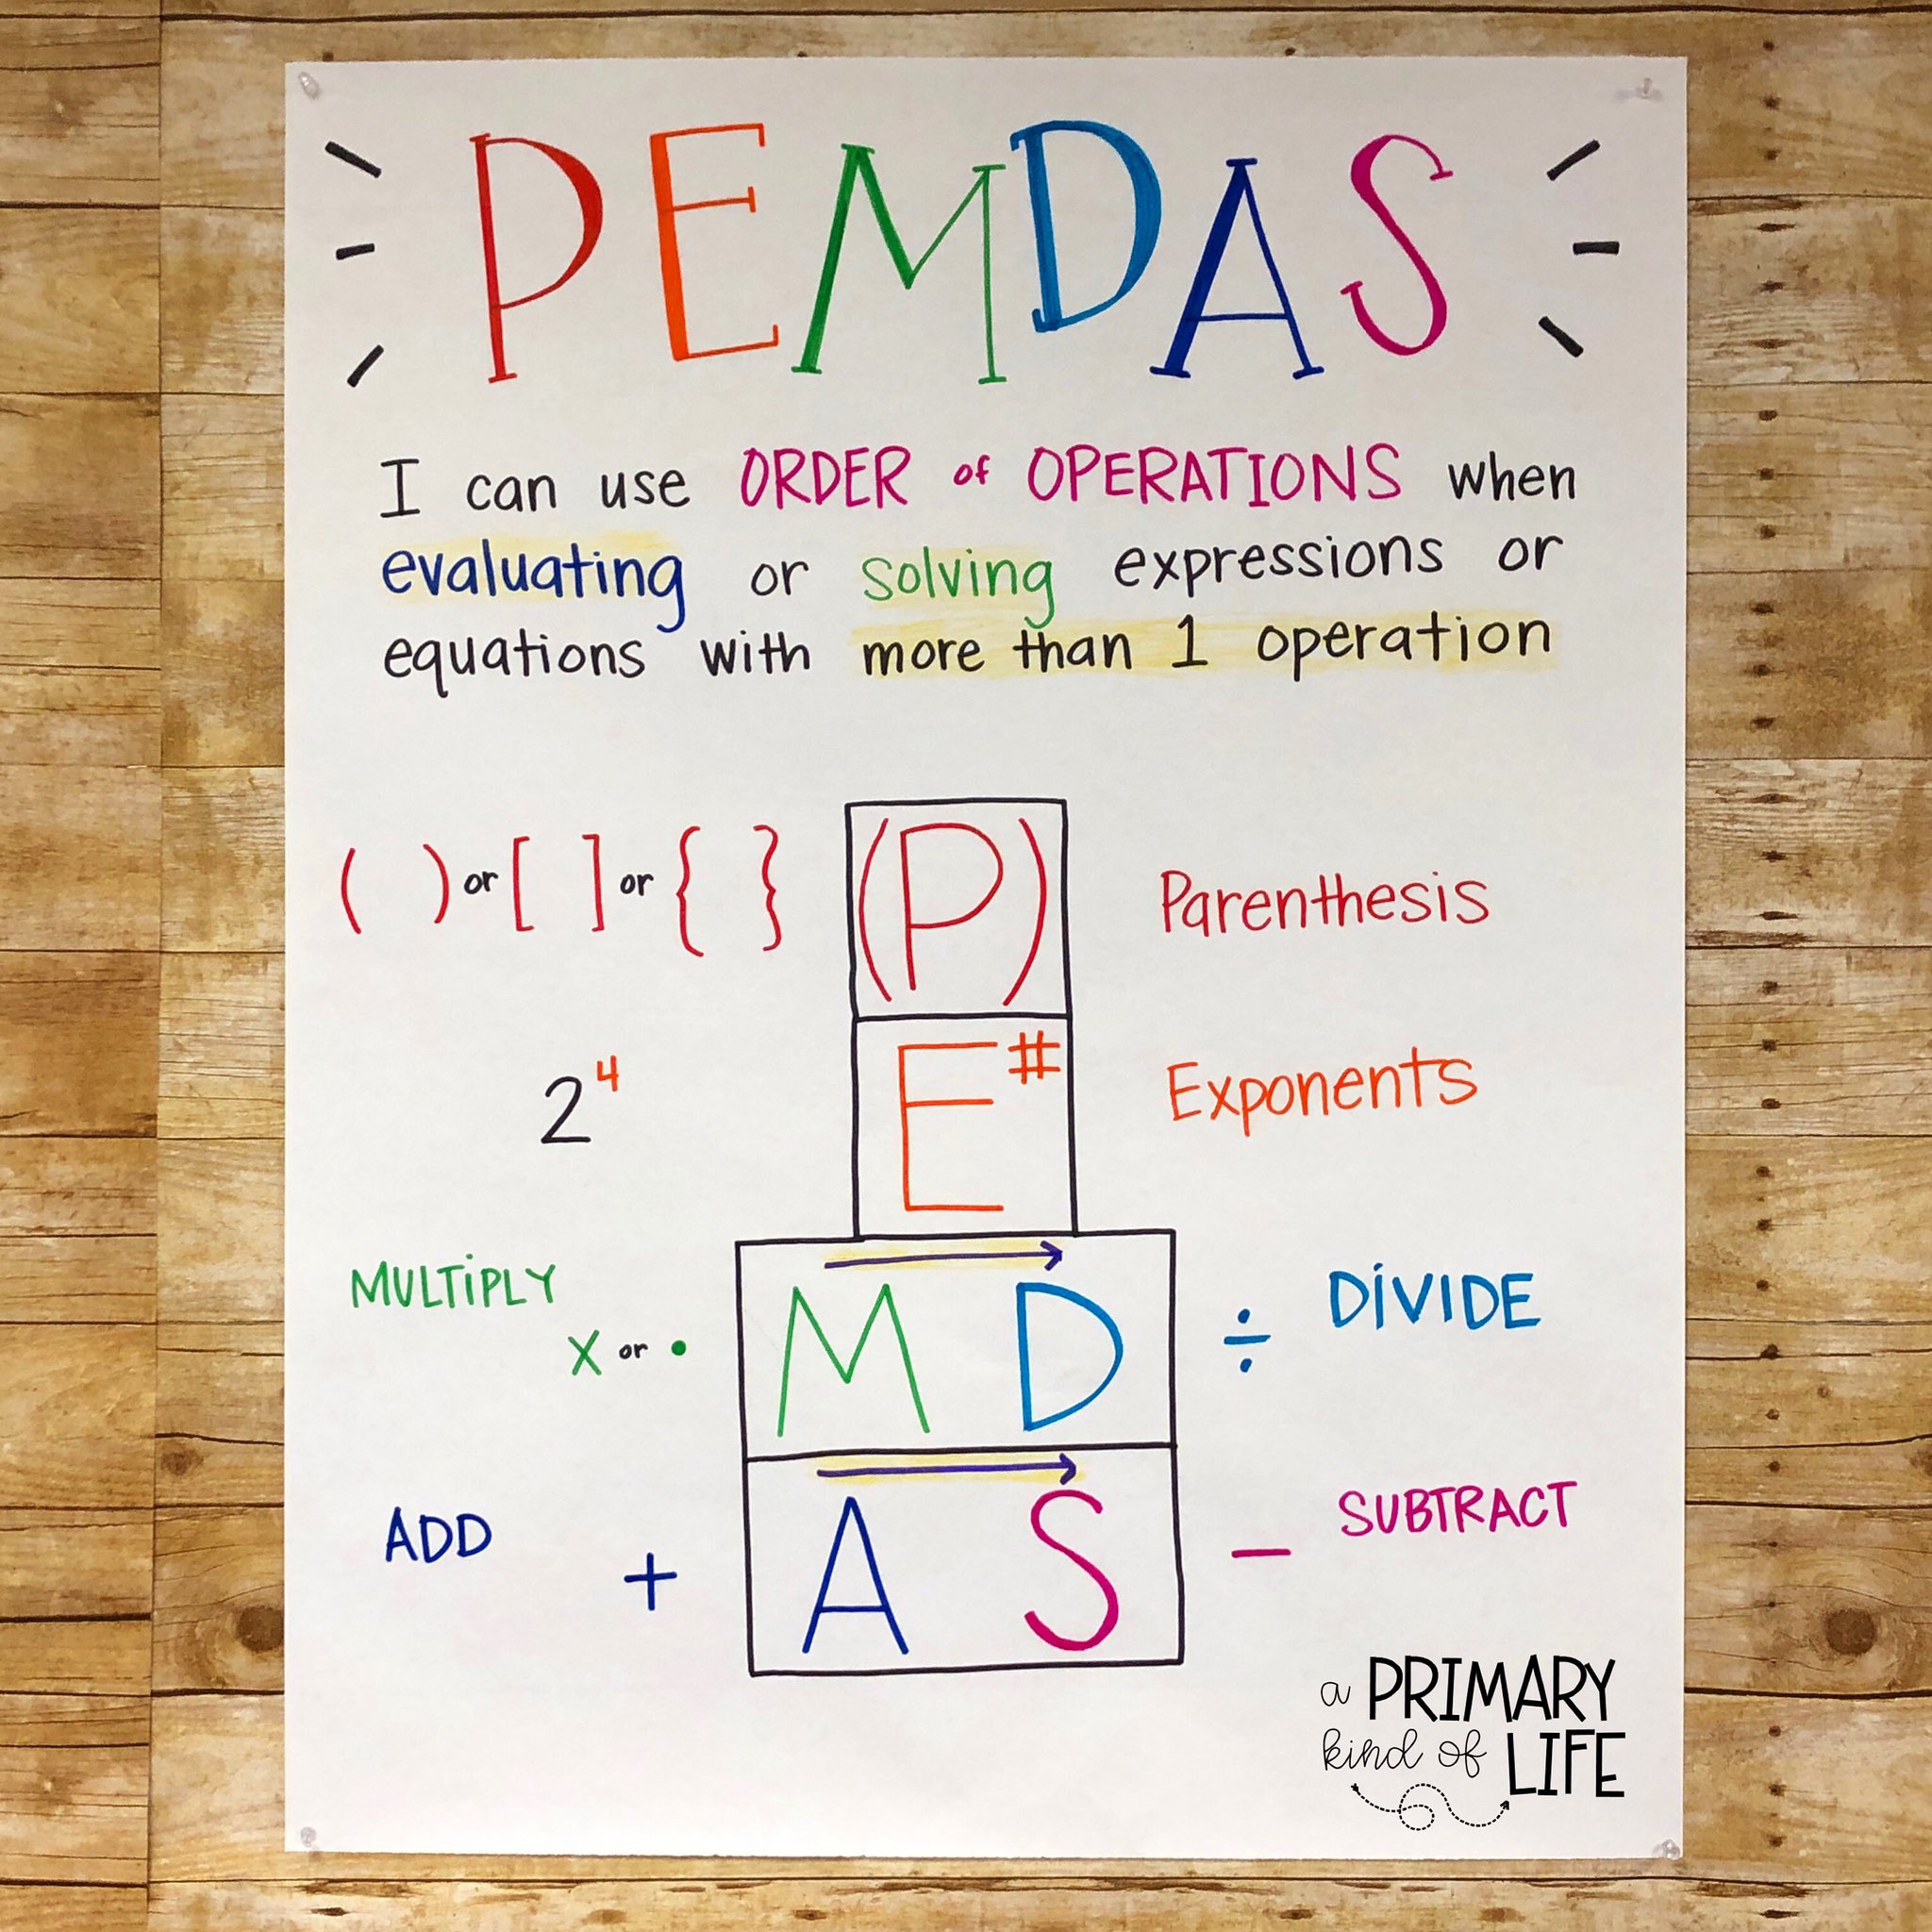 PEMDAS
I can use ORDER of OPERATIONS when
evaluating or solving expressions or
equations with more than 1 operation
( ) or [ ] or { } (P) Parenthesis
2⁴ E# Exponents
MULTiPLY x or • M D ÷ DiViDE
ADD + A S − SUBTRACT
a PRIMARY
kind of LIFE